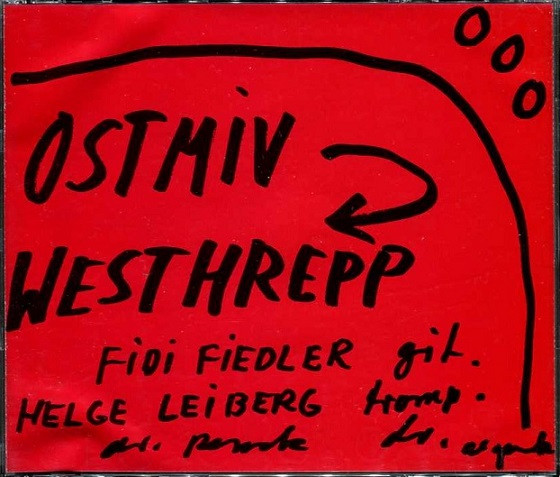 OSTMIV
WESTHREPP
FIDI FIEDLER git.
HELGE LEIBERG tromp.
ar. penck dr.